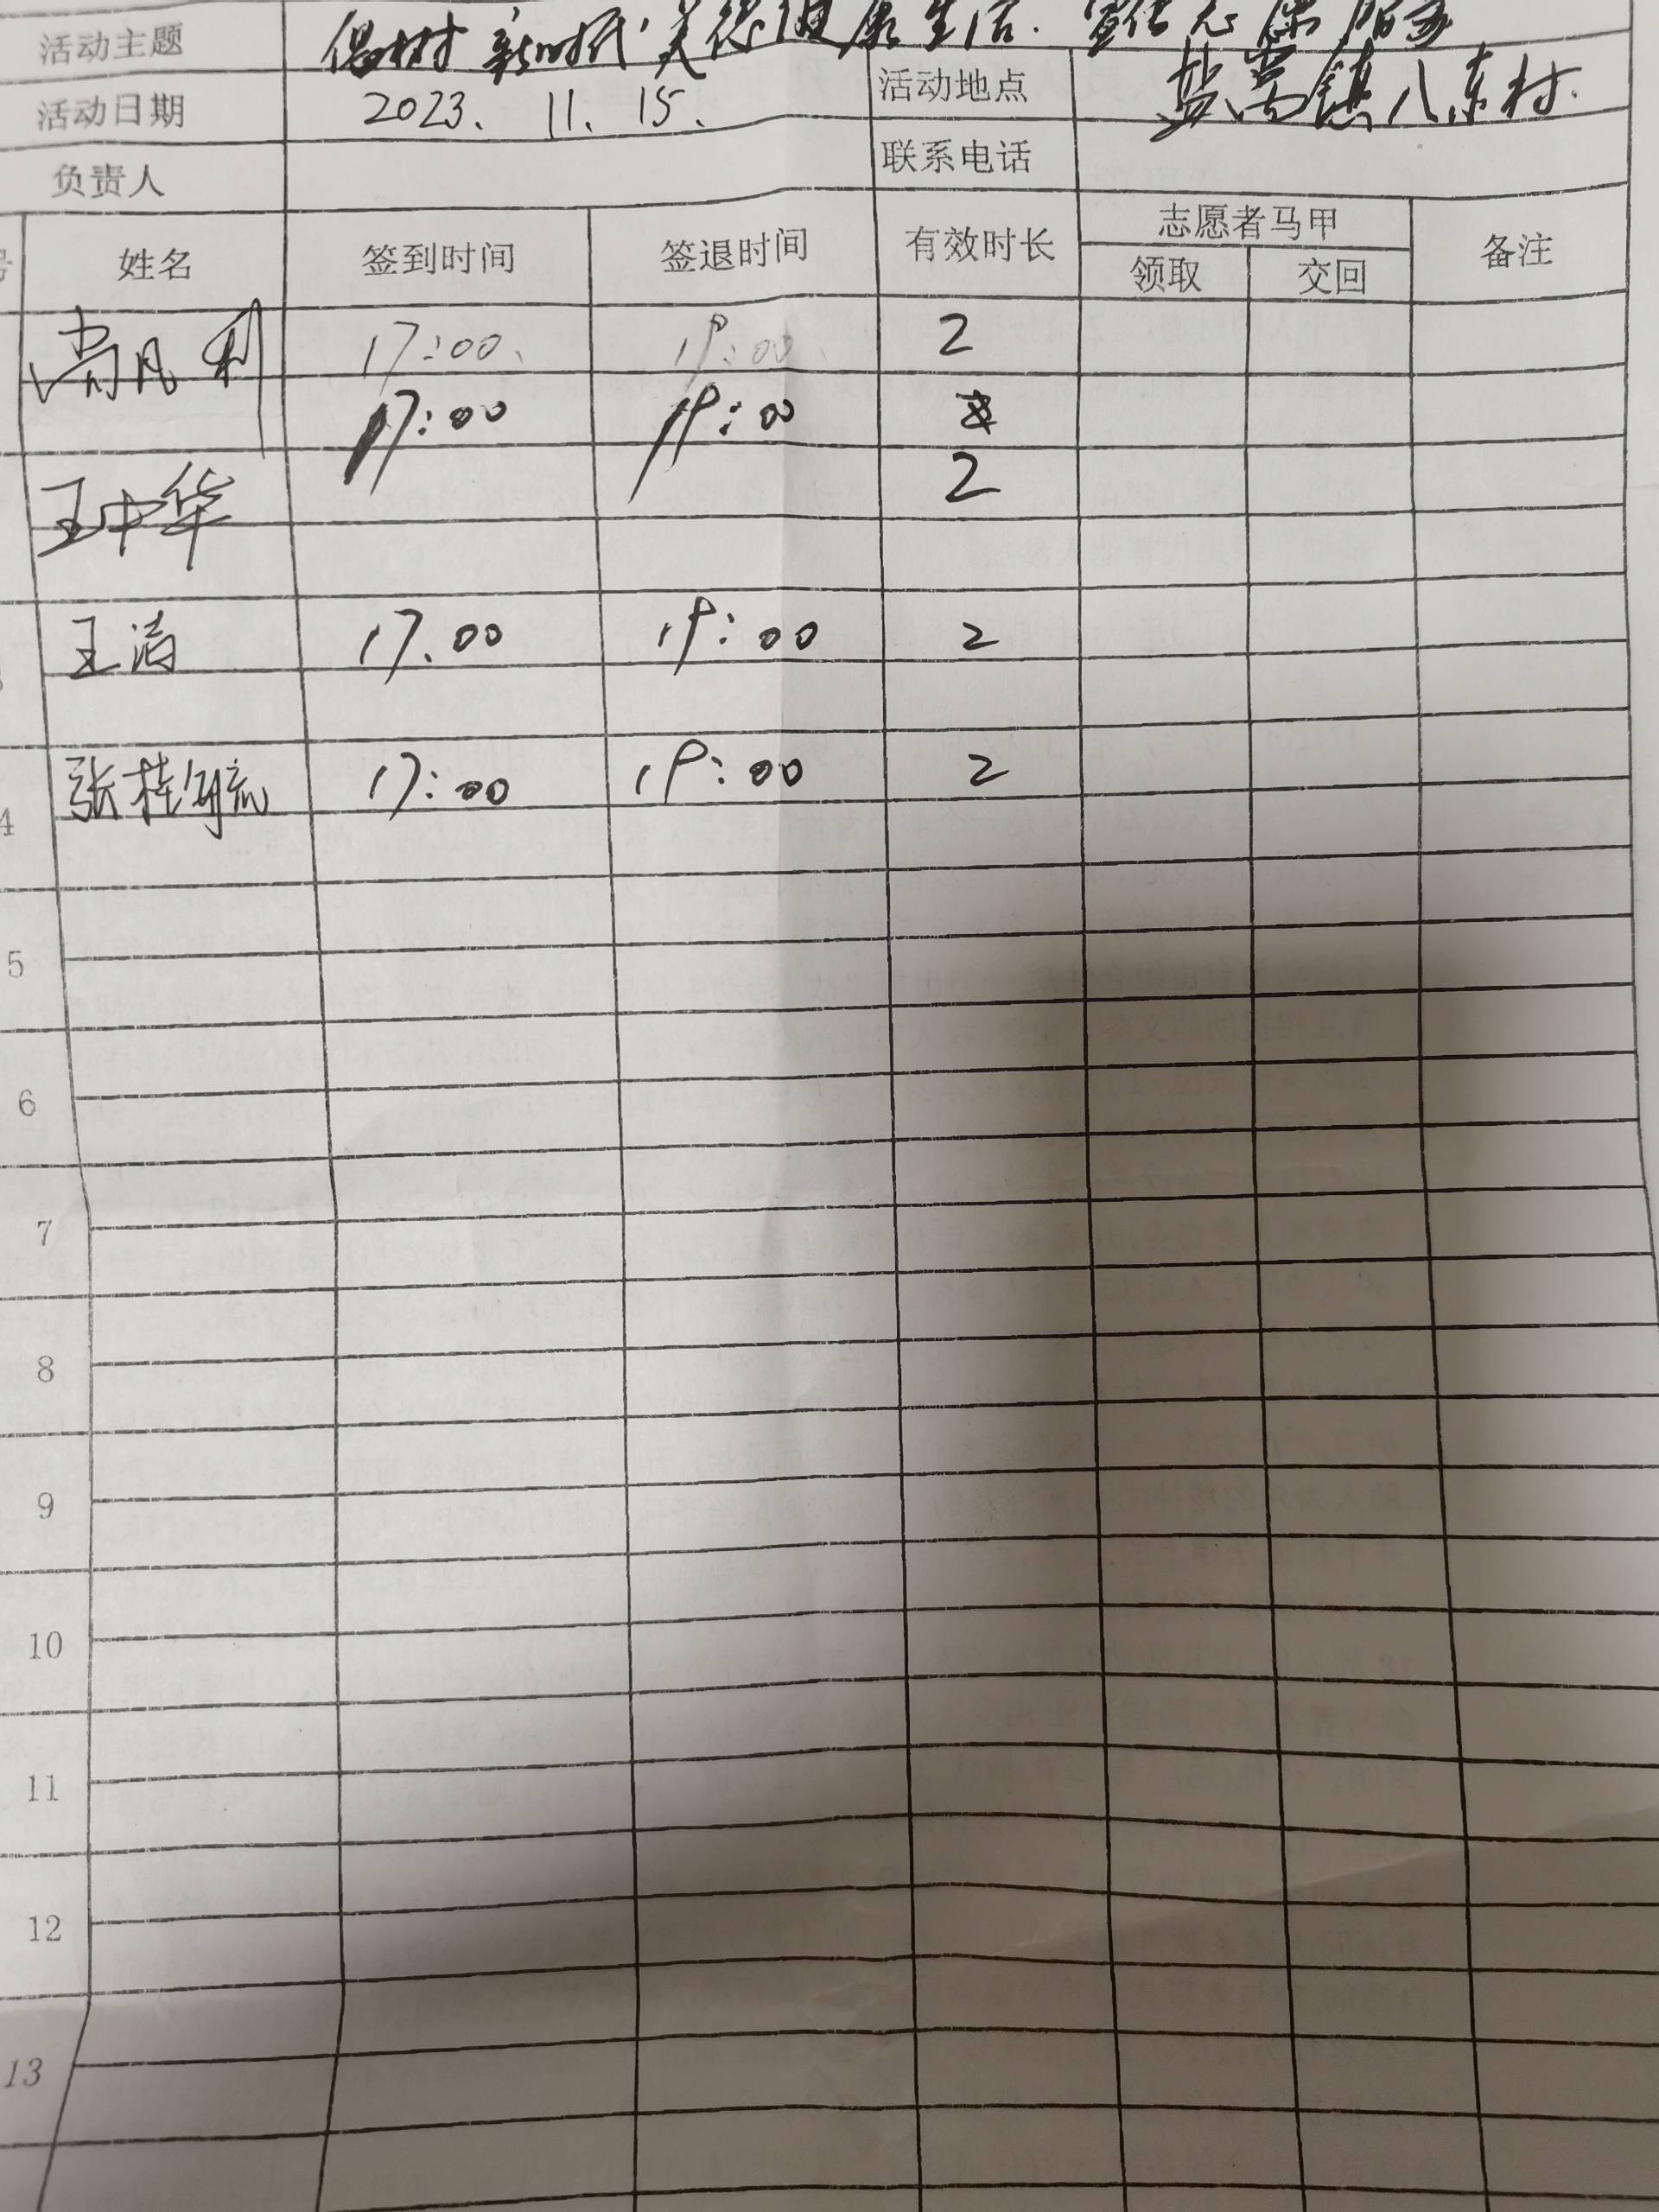 活动主题 新时代美德健康生活.
活动日期 2023. 11. 15. 活动地点 盐窝镇八东村.
负责人 联系电话
号 姓名 签到时间 签退时间 有效时长 志愿者马甲 备注
领取 交回
17:00. 19:00. 2
17:00 19:00
王中华 2
王涛 17.00 19:00 2
4 张桂 17:00 19:00 2
5
6
7
8
9
10
11
12
13